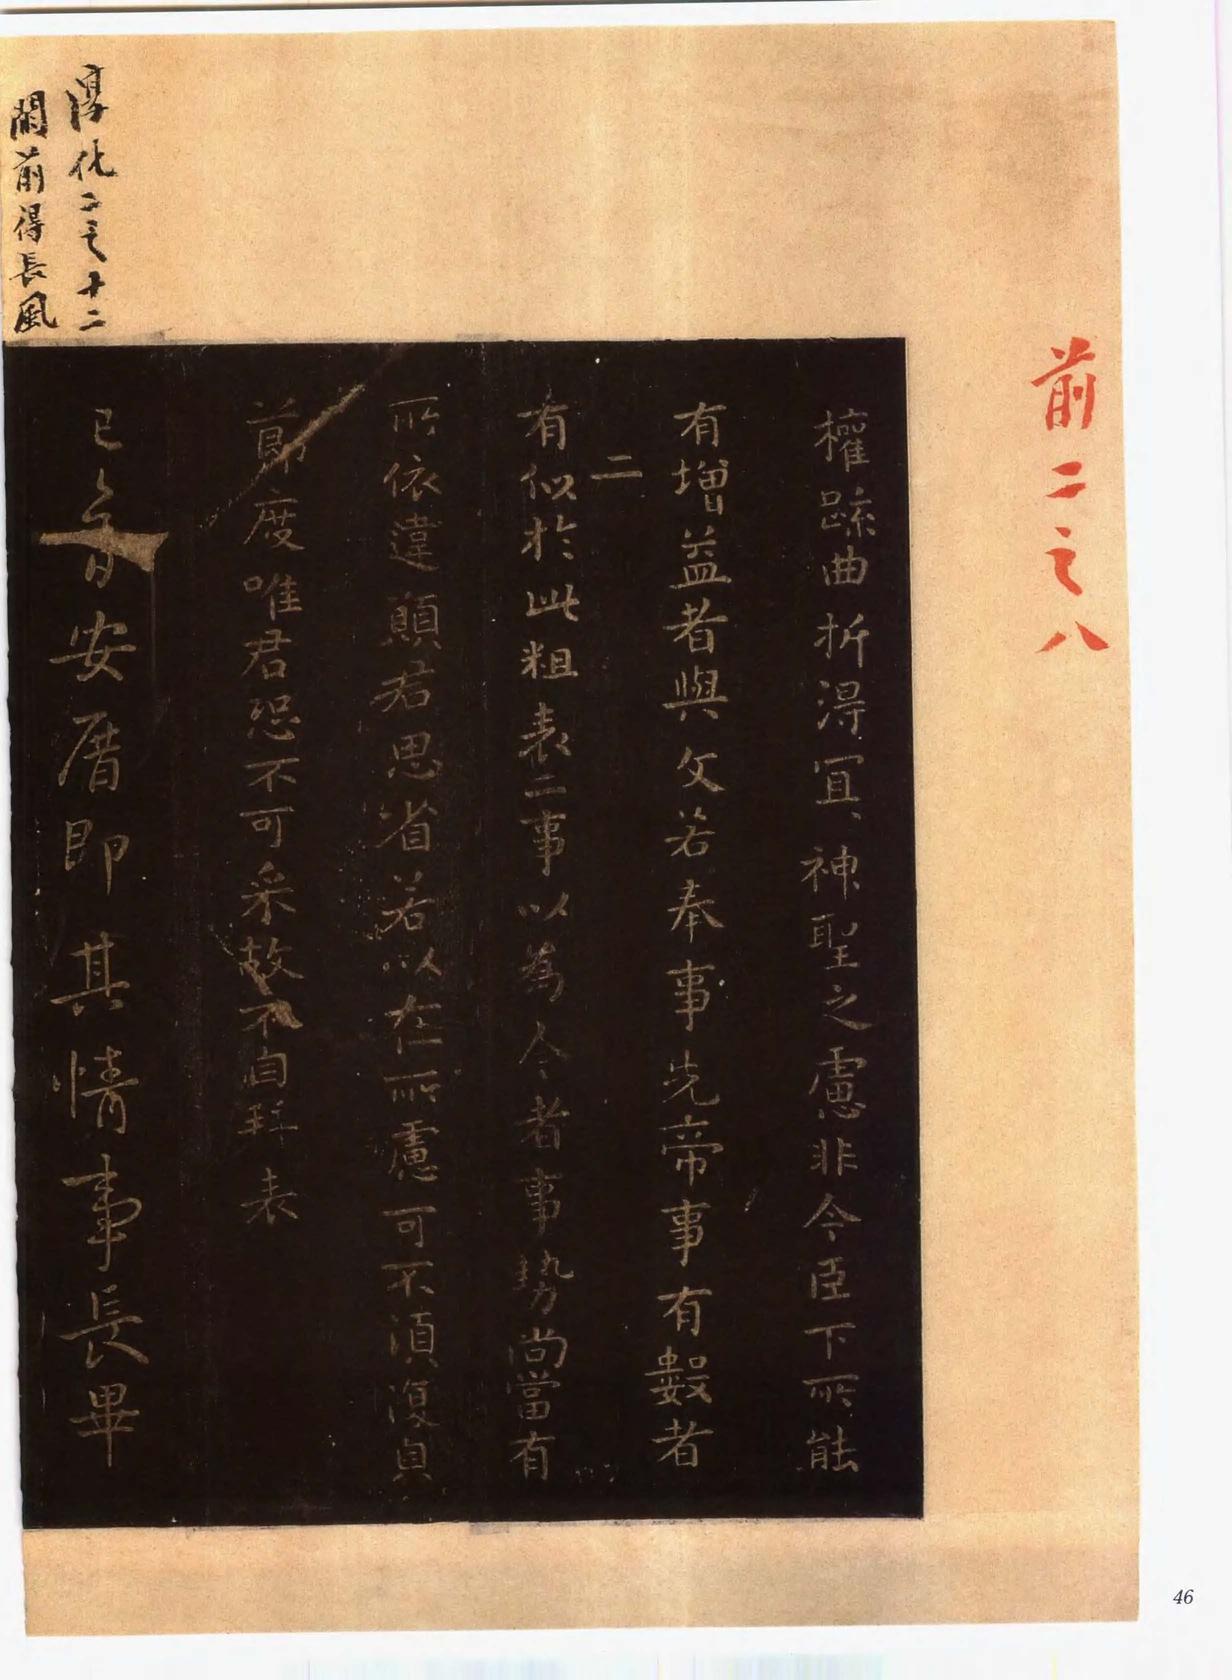 前二之八
權疏曲折得冝神聖之慮非今臣下所能
有增益者與文若奉事先帝事有數者
二
有似於此粗表二事以為今者事勢尚當有
所依違願君思省若以在所慮可不須復貟
節度唯君恐不可采故不自拜表
已至安厝即其情事長畢
淳化二之十二
閣前得長風
46